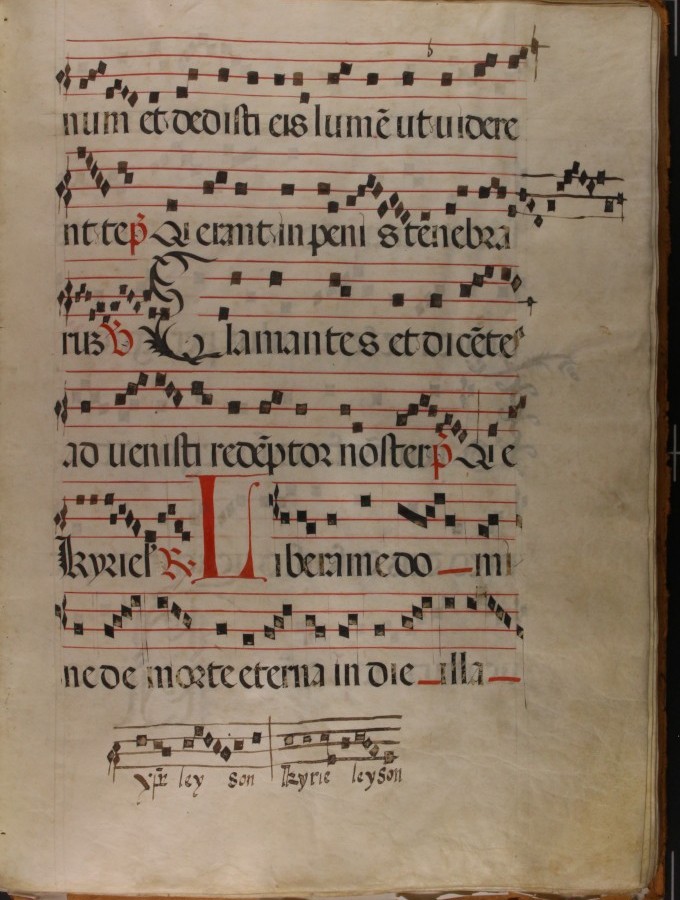 num et dedisti eis lumē ut uidere
nt te p̄ Qi erant in peni s tenebra
rus ℣ Clamantes et dicēte
ad uenisti redēptor noster p̄ Qi e
kyriel ℟ Libera me do mi
ne de morte eterna in die illa
xp̄e ley son kyrie leyson